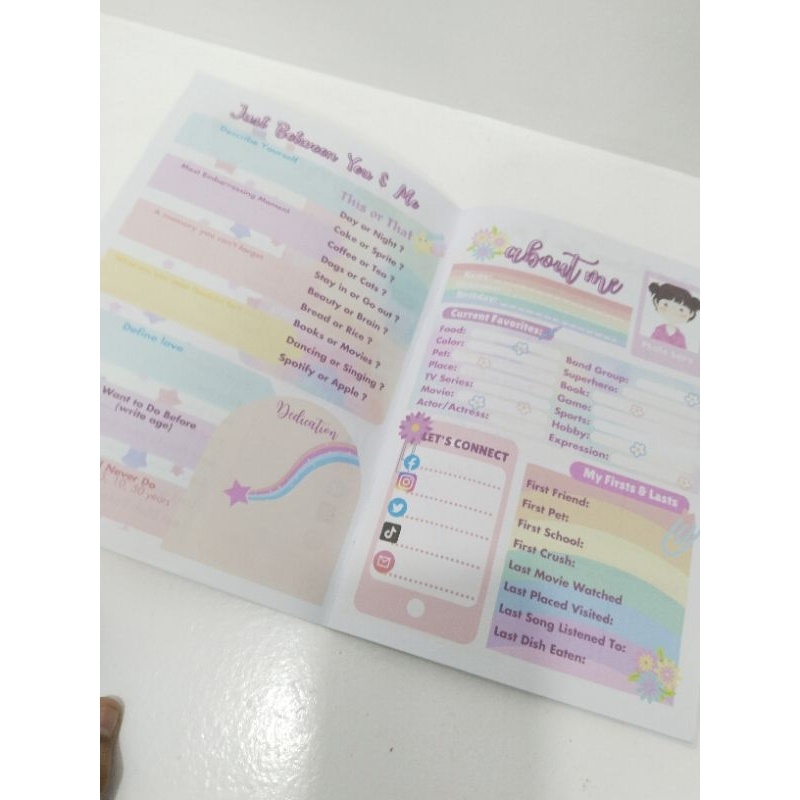 Just Between You & Me
Describe Yourself
Most Embarrassing Moment
A memory you can't forget
Define love
Want to Do Before
(write age)
Never Do
10, 30 years
This or That
Day or Night ?
Coke or Sprite ?
Coffee or Tea ?
Dogs or Cats ?
Stay in or Go out ?
Beauty or Brain ?
Bread or Rice ?
Books or Movies ?
Dancing or Singing ?
Spotify or Apple ?
Dedication
about me
Name:
Birthday:
Current Favorites:
Food:
Color:
Pet:
Place:
TV Series:
Movie:
Actor/Actress:
Band Group:
Superhero:
Book:
Game:
Sports:
Hobby:
Expression:
LET'S CONNECT
My Firsts & Lasts
First Friend:
First Pet:
First School:
First Crush:
Last Movie Watched
Last Placed Visited:
Last Song Listened To:
Last Dish Eaten: